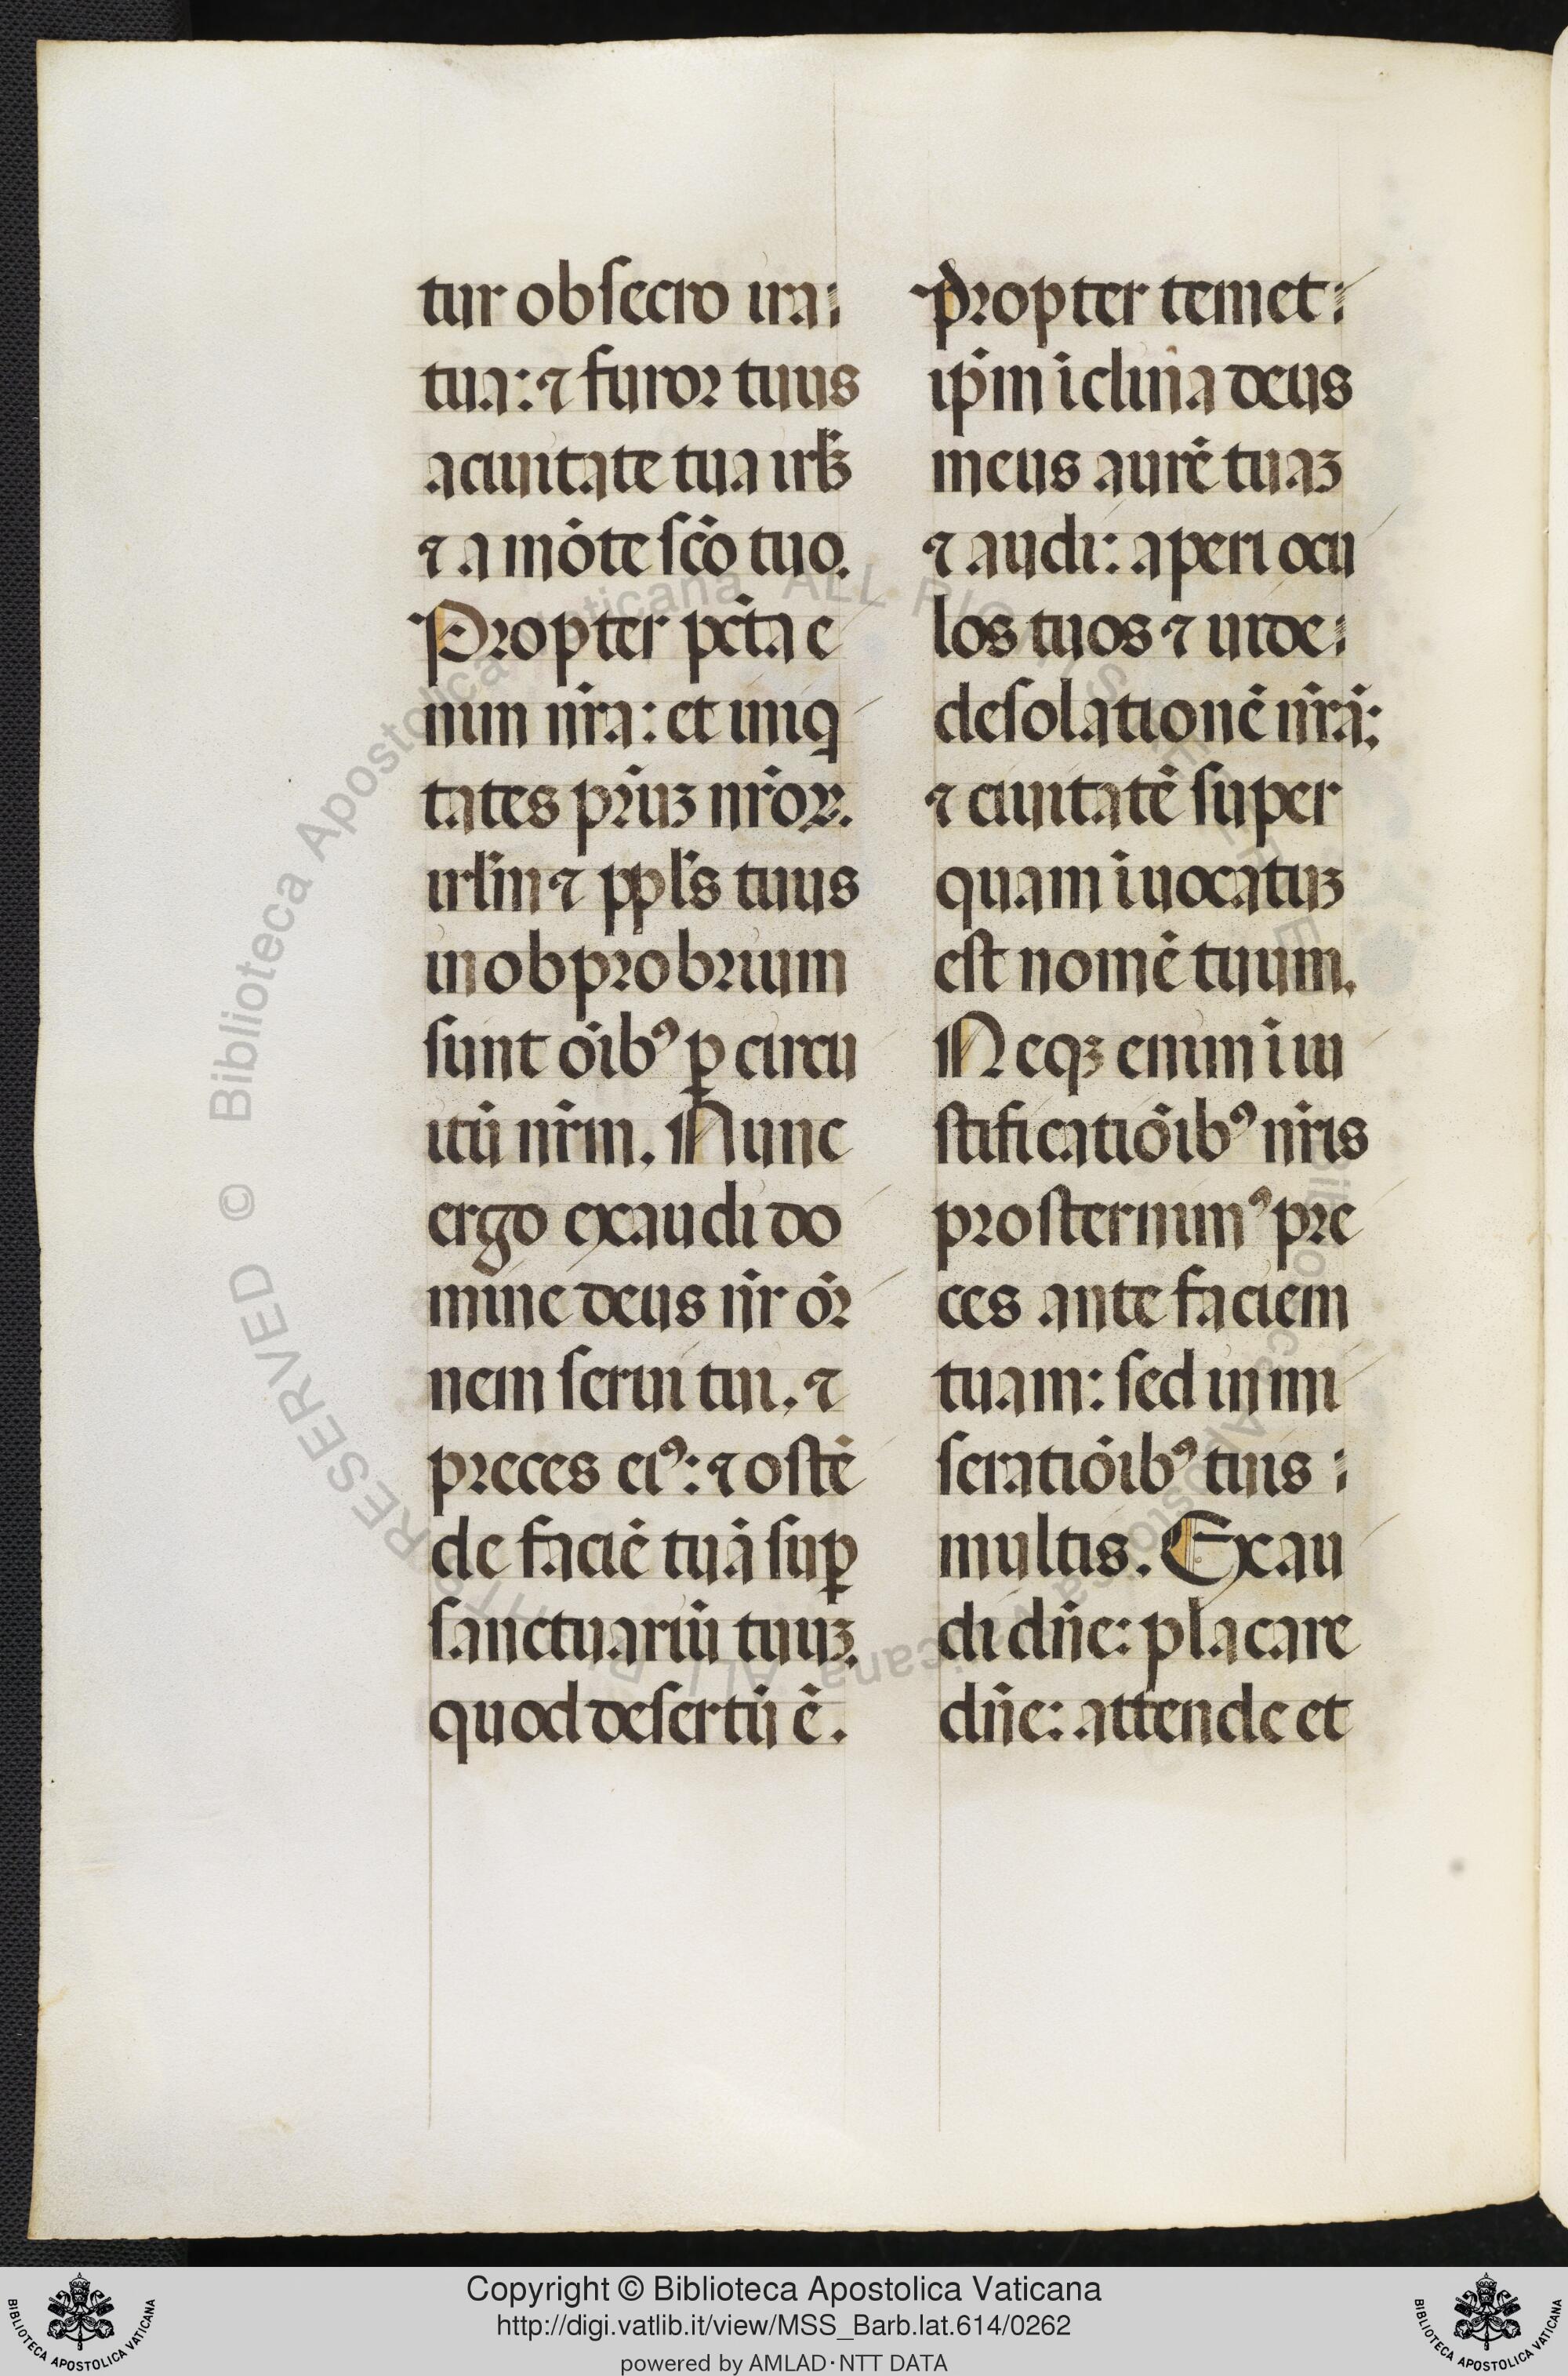 tur obsecro ira
tua: ⁊ furor tuus
a ciuitate tua irl̄ꝫ
⁊ a mōte scō tuo.
Propter pctā e
nim nr̄a: et iniq
tates pr̄uꝫ nr̄oꝝ.
irlm̄ ⁊ ppl̄s tuus
in obprobrium
sunt oībꝰ ꝑ circu
itū nr̄m. Nunc
ergo exaudi do
mine deus nr̄ or̄
nem serui tui. ⁊
preces eiꝰ: ⁊ ostē
de faciē tuā suꝑ
sanctuariū tuuꝫ.
quod desertū ē.
Propter temet
ip̄m īclina deus
meus aurē tuaꝫ
⁊ audi: aperi ocu
los tuos ⁊ uide
desolationē nr̄ā:
⁊ ciuitatē super
quam īuocatuꝫ
est nomē tuum.
Neqꝫ enim ī iu
stificatiōibꝰ nr̄is
prosternimꝰ pre
ces ante faciem
tuam: sed in mi
seratiōibꝰ tuis
multis. Exau
di dn̄e: placare
dn̄e: attende et
© Biblioteca Apostolica Vaticana ALL RIGHTS RESERVED
Copyright © Biblioteca Apostolica Vaticana
http://digi.vatlib.it/view/MSS_Barb.lat.614/0262
powered by AMLAD·NTT DATA
BIBLIOTECA APOSTOLICA VATICANA
BIBLIOTECA APOSTOLICA VATICANA